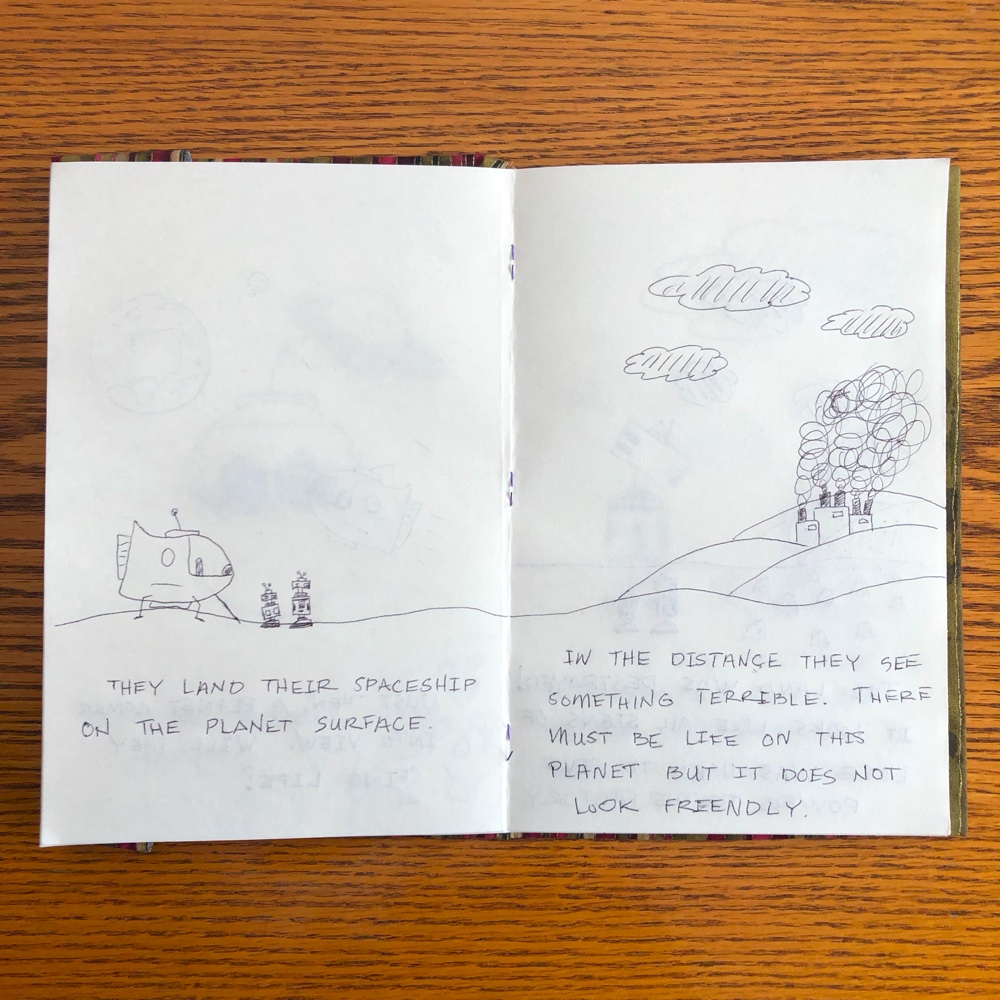 THEY LAND THEIR SPACESHIP
ON THE PLANET SURFACE.
IN THE DISTANCE THEY SEE
SOMETHING TERRIBLE. THERE
MUST BE LIFE ON THIS
PLANET BUT IT DOES NOT
LOOK FREENDLY.